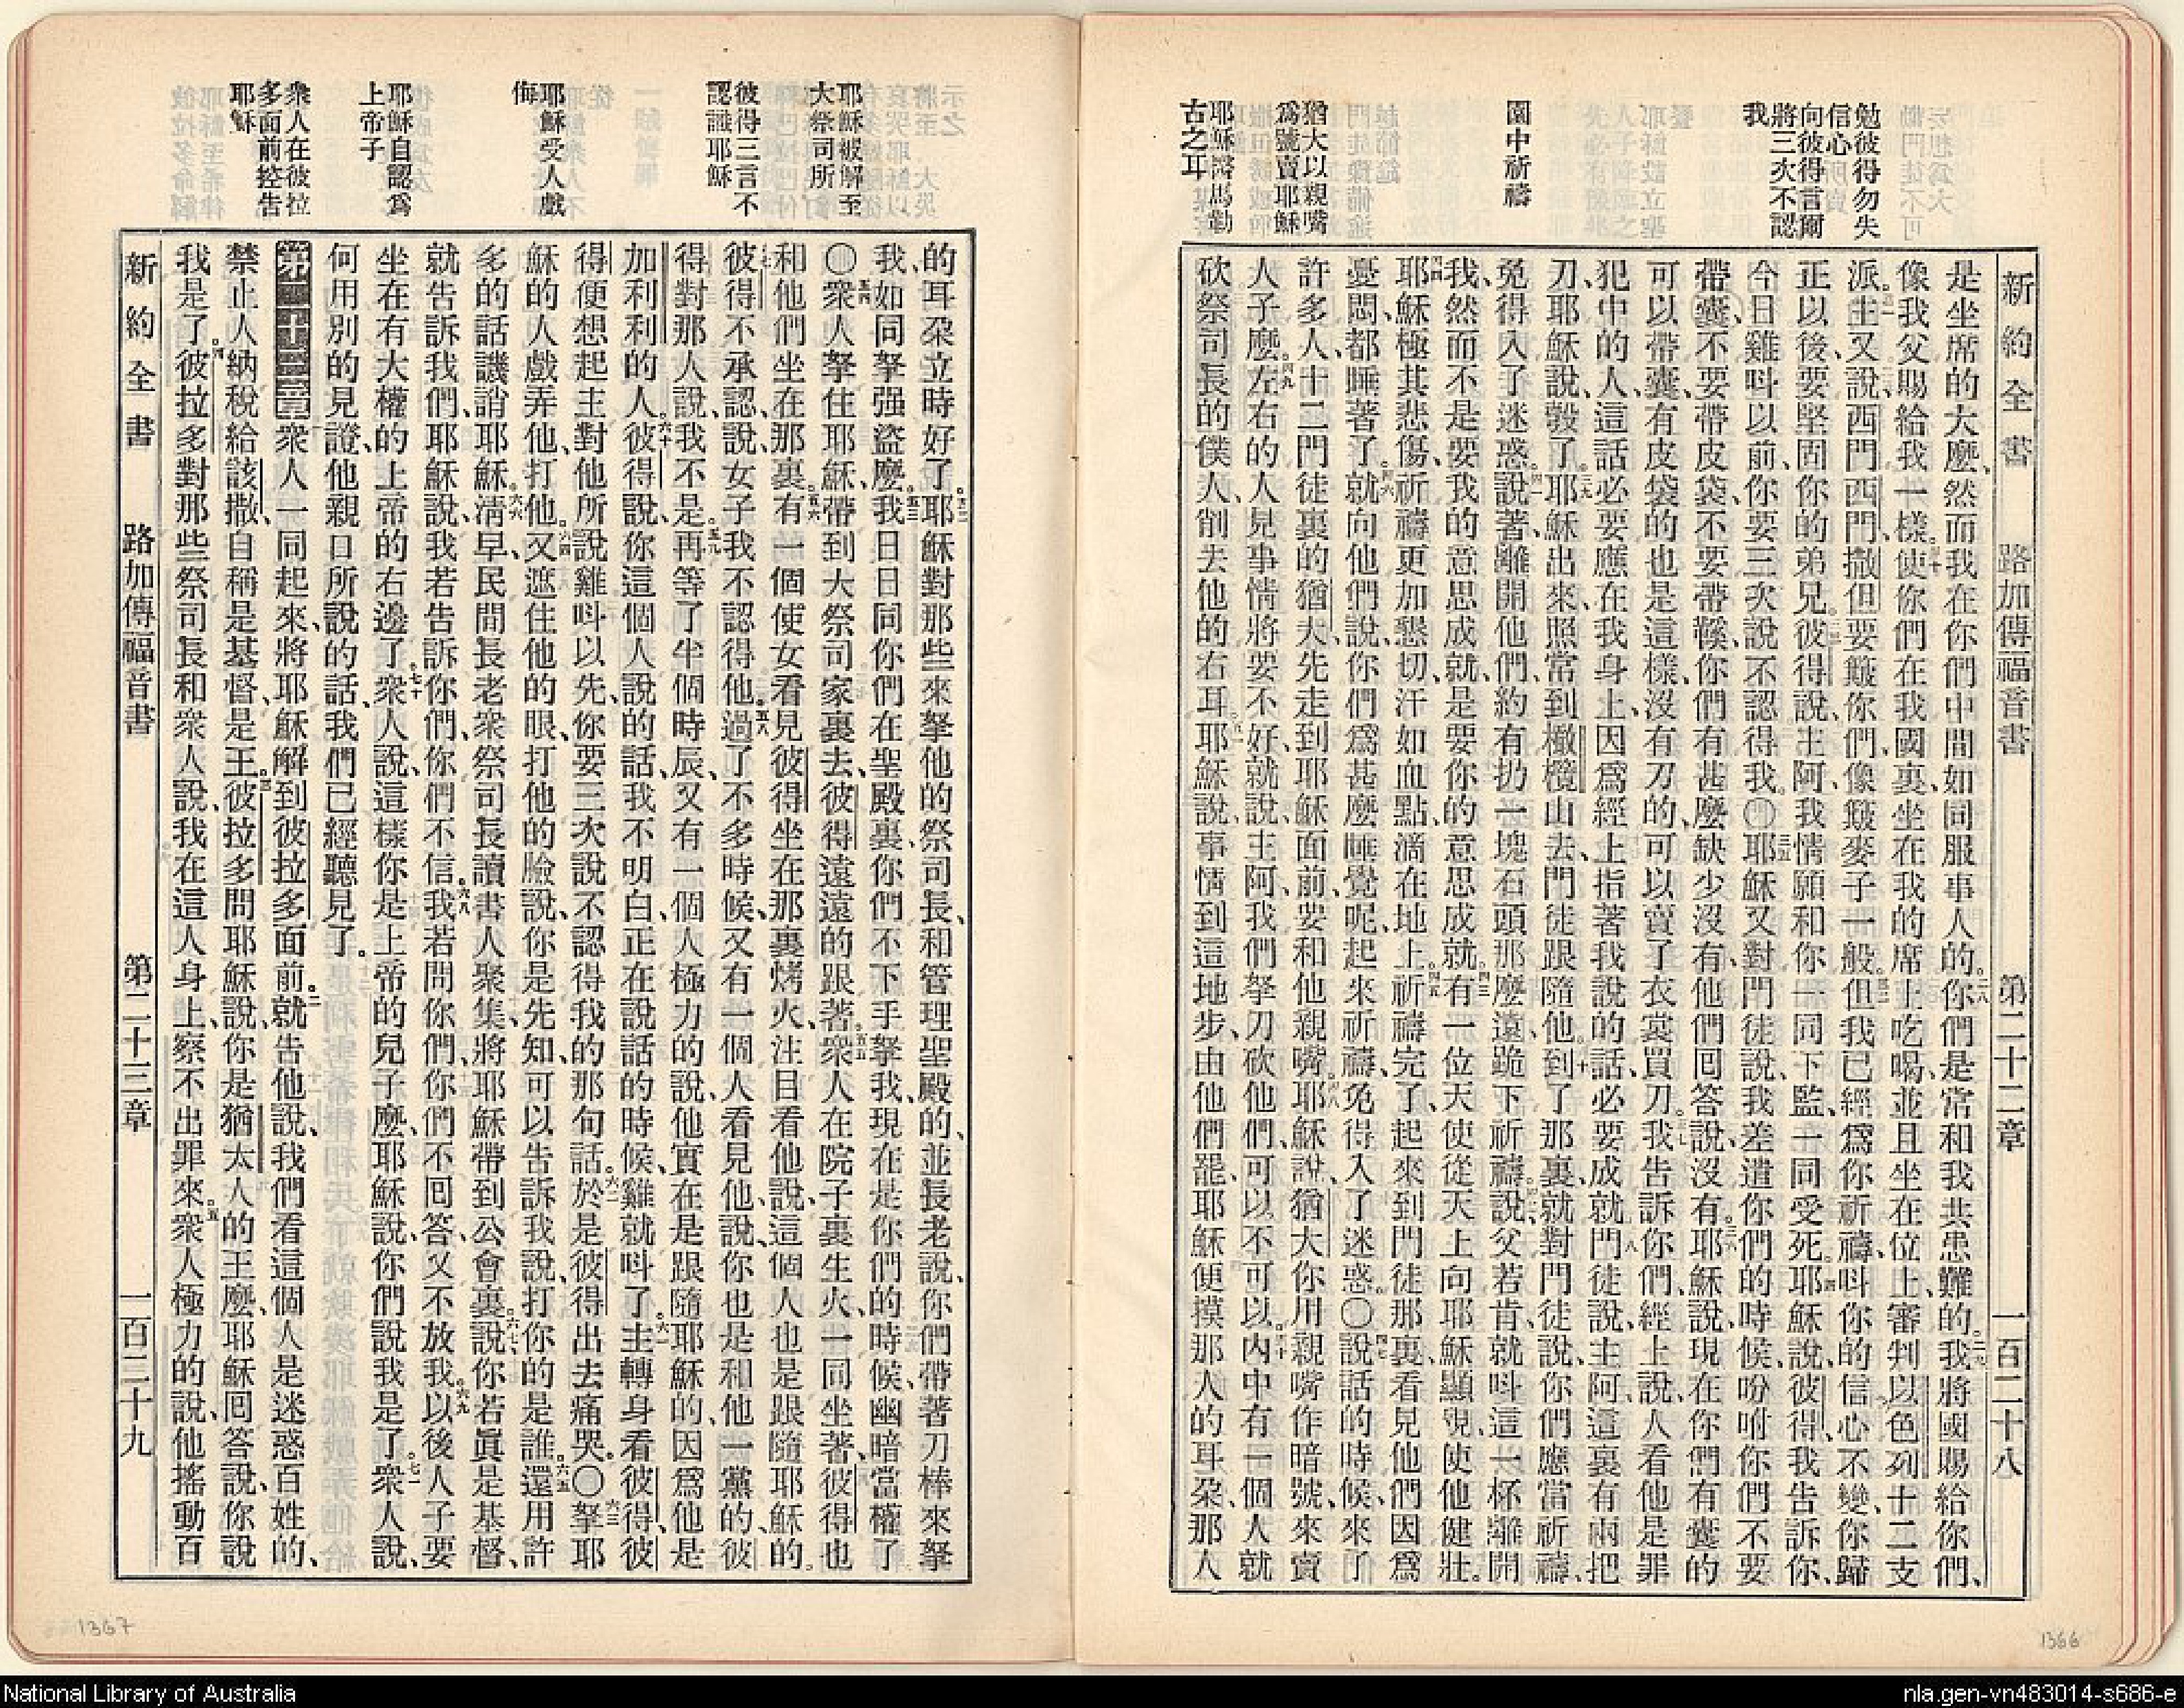 勉彼得勿失
信心
向彼得言爾
將三次不認
我
園中祈禱
猶大以親嘴
爲號賣耶穌
耶穌醫馬勒
古之耳
新約全書 路加傳福音書 第二十二章 一百二十八
是坐席的大麽、然而我在你們中間如同服事人的。二八你們是常和我共患難的。二九我將國賜給你們、
像我父賜給我一樣。三十使你們在我國裏坐在我的席上吃喝、並且坐在位上、審判以色列十二支
派。三一主又說、西門、西門、撒但要簸你們、像簸麥子一般。三二但我已經爲你祈禱、呌你的信心不變、你歸
正以後、要堅固你的弟兄。三三彼得說、主阿、我情願和你一同下監、一同受死。三四耶穌說、彼得、我告訴你、
今日雞呌以前、你要三次說不認得我。〇三五耶穌又對門徒說、我差遣你們的時候、吩咐你們不要
帶囊、不要帶皮袋、不要帶鞵、你們有甚麽缺少沒有、他們回答說、沒有。三六耶穌說、現在你們有囊的
可以帶囊、有皮袋的也是這樣、沒有刀的、可以賣了衣裳買刀。三七我告訴你們、經上說、人看他是罪
犯中的人、這話必要應在我身上、因爲經上指著我說的話、必要成就。三八門徒說、主阿、這裏有兩把
刀、耶穌說、彀了。三九耶穌出來、照常到橄欖山去、門徒跟隨他。四十到了那裏、就對門徒說、你們應當祈禱、
免得入了迷惑。四一說著、離開他們、約有扔一塊石頭那麽遠、跪下祈禱。四二說、父若肯、就呌這一杯離開
我、然而不是要我的意思成就、是要你的意思成就。四三有一位天使從天上向耶穌顯現、使他健壯。
四四耶穌極其悲傷、祈禱更加懇切、汗如血點、滴在地上。四五祈禱完了、起來到門徒那裏、看見他們因爲
憂悶、都睡著了。四六就向他們說、你們爲甚麽睡覺呢、起來祈禱、免得入了迷惑。〇四七說話的時候、來了
許多人、十二門徒裏的猶大、先走到耶穌面前、要和他親嘴。四八耶穌說、猶大、你用親嘴作暗號、來賣
人子麽。四九左右的人見事情將要不好、就說、主阿、我們拏刀砍他們、可以不可以。五十內中有一個人就
砍祭司長的僕人、削去他的右耳。五一耶穌說、事情到這地步、由他們罷、耶穌便摸那人的耳朶、那人
1366
耶穌被解至
大祭司所
彼得三言不
認識耶穌
耶穌受人戲
侮
耶穌自認爲
上帝子
衆人在彼拉
多面前控告
耶穌
的耳朶立時好了。五二耶穌對那些來拏他的祭司長、和管理聖殿的、並長老說、你們帶著刀棒來拏
我、如同拏强盜麽。五三我日日同你們在聖殿裏、你們不下手拏我、現在是你們的時候、幽暗當權了
〇五四衆人拏住耶穌、帶到大祭司家裏去、彼得遠遠的跟著。五五衆人在院子裏生火、一同坐著、彼得也
和他們坐在那裏。五六有一個使女看見彼得坐在那裏烤火、注目看他、說、這個人也是跟隨耶穌的。
五七彼得不承認、說、女子、我不認得他。五八過了不多時候、又有一個人看見他、說、你也是和他一黨的、彼
得對那人說、我不是。五九再等了半個時辰、又有一個人極力的說、他實在是跟隨耶穌的、因爲他是
加利利的人。六十彼得說、你這個人說的話、我不明白、正在說話的時候、雞就呌了。六一主轉身看彼得、彼
得便想起主對他所說、雞呌以先、你要三次說不認得我的那句話。六二於是彼得出去痛哭。〇六三拏耶
穌的人戲弄他、打他。六四又遮住他的眼、打他的臉、說、你是先知、可以告訴我說、打你的是誰。六五還用許
多的話譏誚耶穌。六六清早、民間長老衆祭司長讀書人聚集、將耶穌帶到公會裏。六七說、你若眞是基督、
就告訴我們、耶穌說、我若告訴你們、你們不信。六八我若問你們、你們不回答、又不放我。六九以後人子要
坐在有大權的上帝的右邊了。七十衆人說、這樣你是上帝的兒子麽、耶穌說、你們說我是了。七一衆人說、
何用別的見證、他親口所說的話、我們已經聽見了。
第二十三章 衆人一同起來、將耶穌解到彼拉多面前。二就告他說、我們看這個人是迷惑百姓的、
禁止人納稅給該撒、自稱是基督、是王。三彼拉多問耶穌說、你是猶太人的王麽、耶穌回答說、你說
我是了。四彼拉多對那些祭司長和衆人說、我在這人身上察不出罪來。五衆人極力的說、他搖動百
新約全書 路加傳福音書 第二十三章 一百二十九
1367
National Library of Australia
nla.gen-vn483014-s686-e